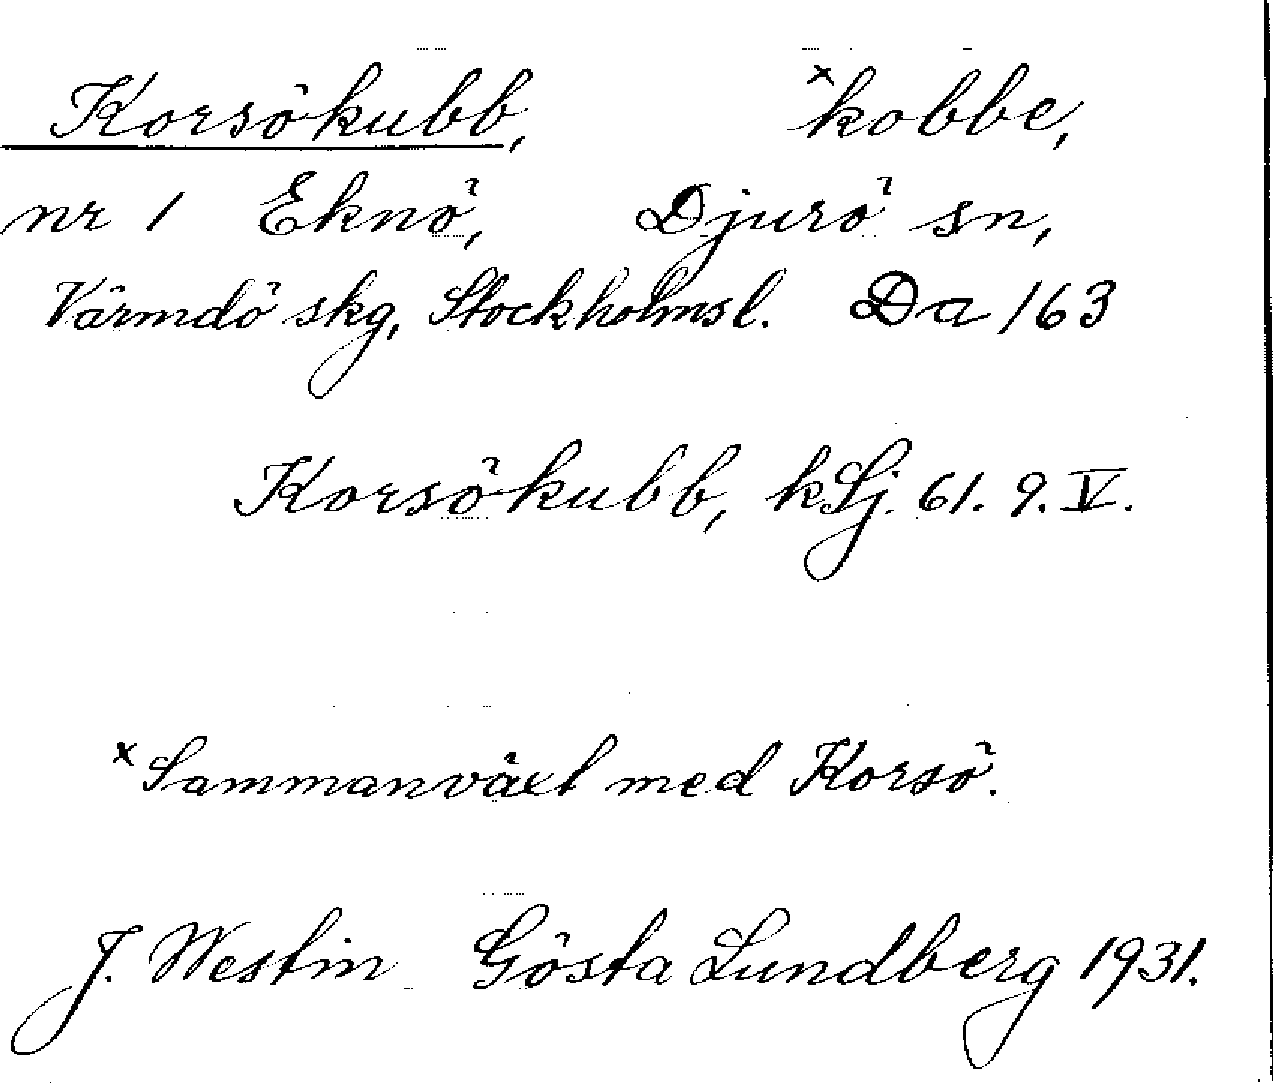 Korsökubb, ˣkobbe,
nr 1 Eknö, Djurö sn,
Värmdö skg, Stockholmsl. Da 163
Korsökubb, kSj. 61. 9. V.
ˣSammanväxt med Korsö.
J. Westin Gösta Lundberg 1931.